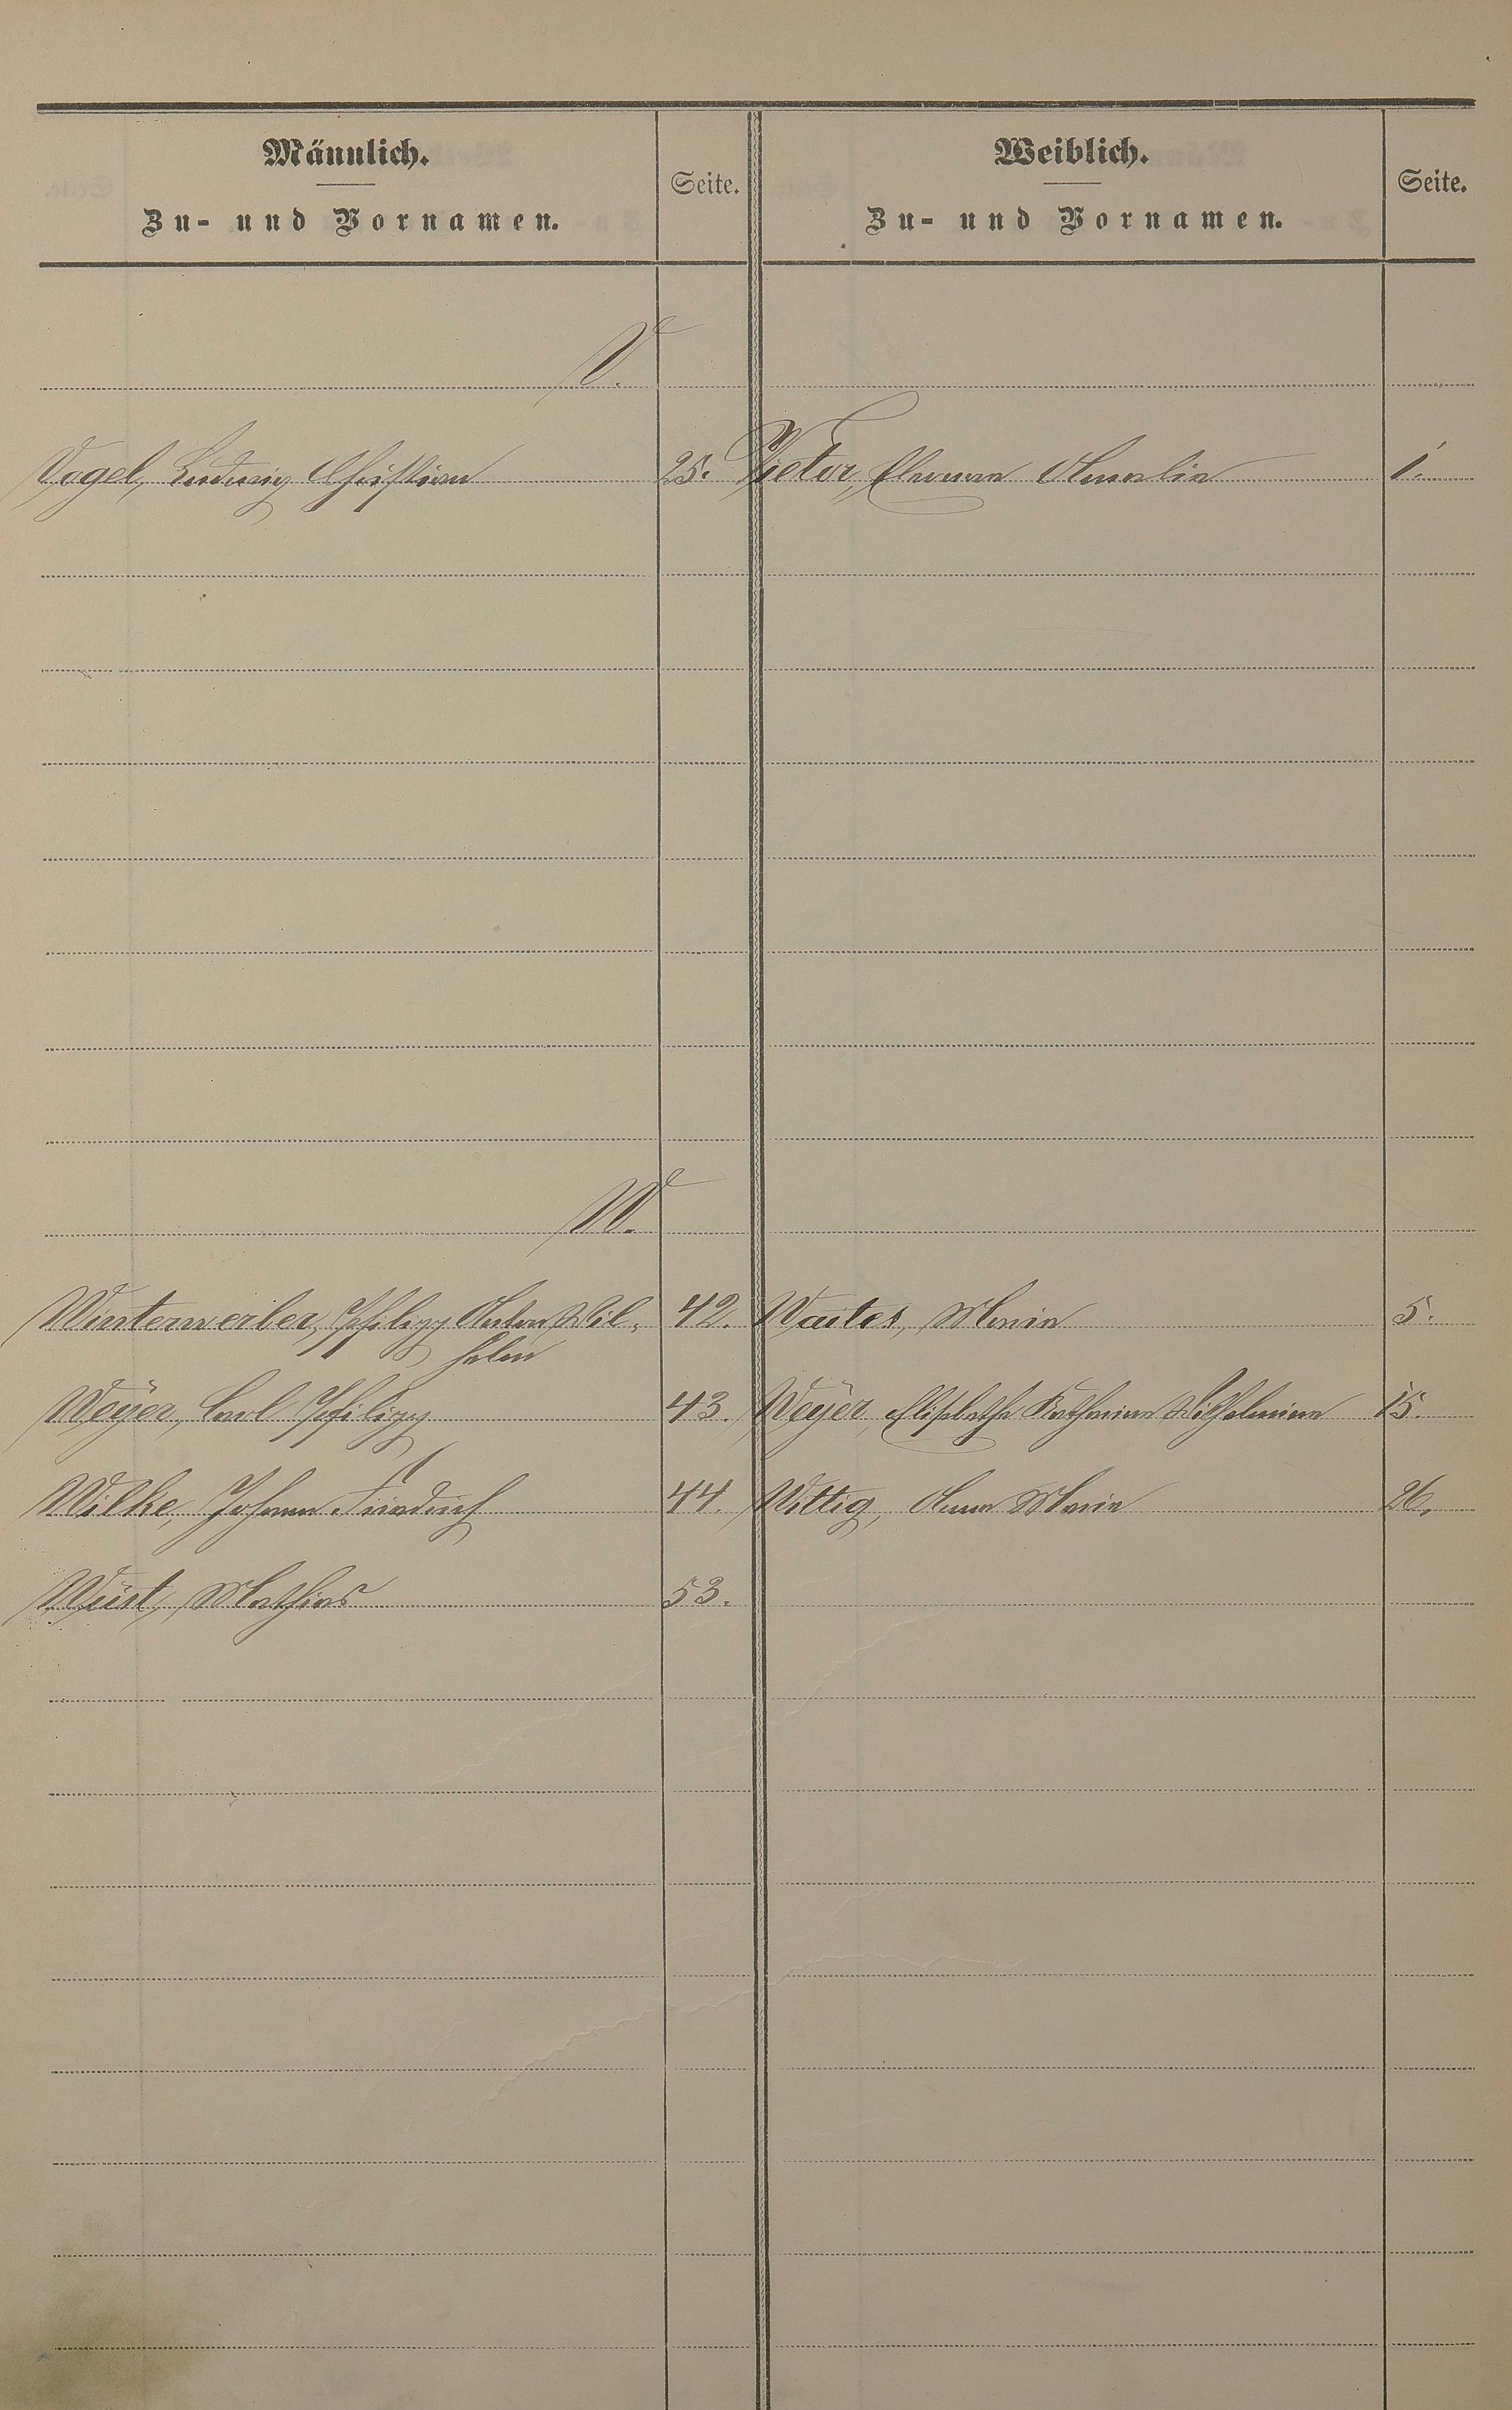 Männlich.
Zu- und Vornamen.
Seite.
Weiblich.
Zu- und Vornamen.
Seite.
V.
Vogel, Ludwig Christian 25. Vietor, Amalie 1.
W.
Winterwerber, Philipp Anton Wil- 42. Waites, Maria 5.
helm
Weyer, Carl Philipp 43. Weyer, Elisabethe Katharine Wilhelmine 15.
Wilke, Johann Friedrich 44. Wittig, Anna Maria 26.
Wüst, Mathias 53.